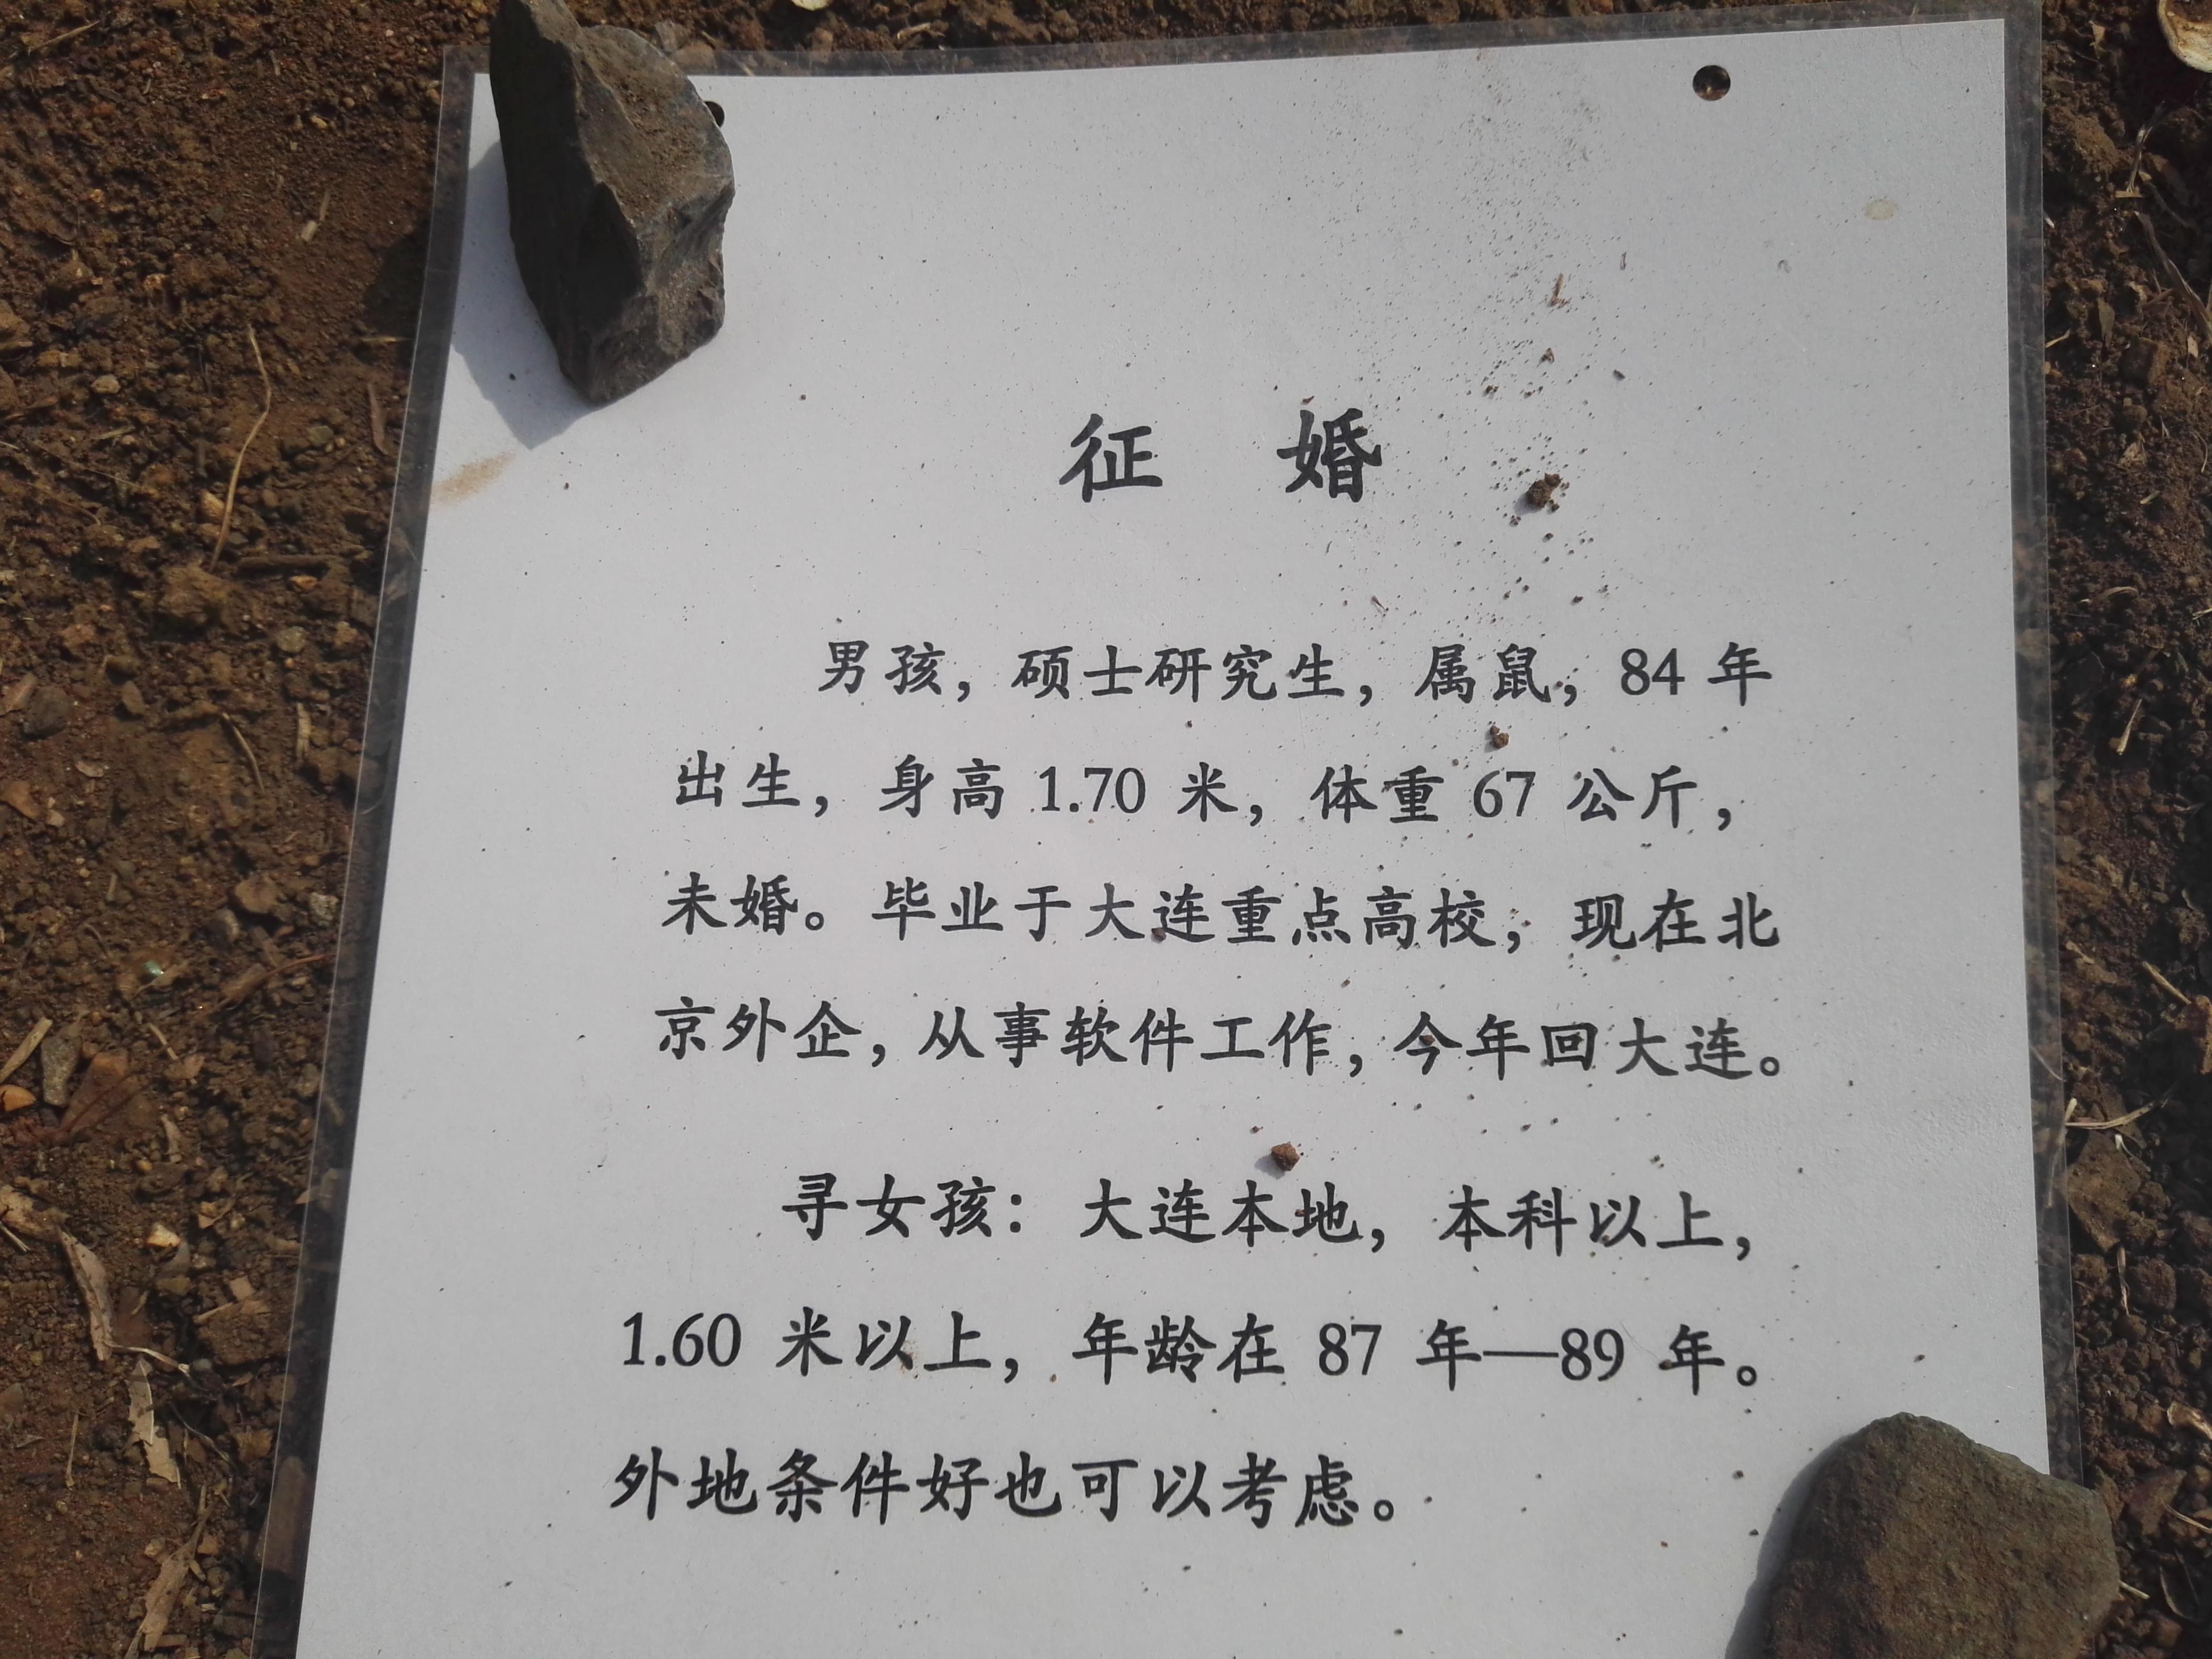 征 婚
男孩，硕士研究生，属鼠，84 年
出生，身高 1.70 米，体重 67 公斤，
未婚。毕业于大连重点高校，现在北
京外企，从事软件工作，今年回大连。
寻女孩：大连本地，本科以上，
1.60 米以上，年龄在 87 年—89 年。
外地条件好也可以考虑。